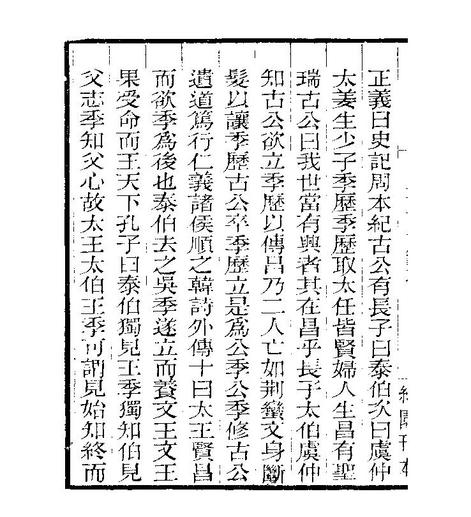 正義曰史記周本紀古公有長子曰泰伯次曰虞仲
太姜生少子季歷季歷取太任皆賢婦人生昌有聖
瑞古公曰我世當有興者其在昌乎長子太伯虞仲
知古公欲立季歷以傳昌乃二人亡如荆蠻文身斷
髮以讓季歷古公卒季歷立是爲公季公季修古公
遺道篤行仁義諸侯順之韓詩外傳十曰太王賢昌
而欲季爲後也泰伯去之吳季遂立而養文王文王
果受命而王天下孔子曰泰伯獨見王季獨知伯見
父志季知父心故太王太伯王季可謂見始知終而